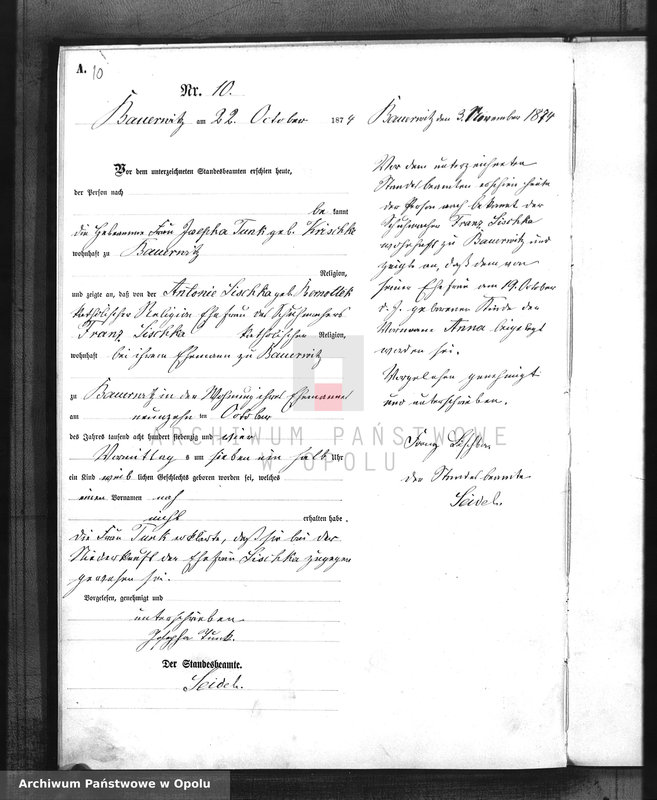 A. 10
Nr. 10.
Bauerwitz am 22. October 1874
Vor dem unterzeichneten Standesbeamten erschien heute,
der Person nach
be kannt
die Hebamme Frau Josepha Tunk geb. Krischke
wohnhaft zu Bauerwitz
Religion,
und zeigte an, daß von der Antonie Lischka geb.
katholischer Religion Ehefrau des Schuhmachers
Franz Lischka katholischer Religion,
wohnhaft bei ihrem Ehemann zu Bauerwitz
zu Bauerwitz in der Wohnung ihres Ehemannes
am neunzehn ten October
des Jahres tausend acht hundert siebenzig und vier
Vormittag s um sieben ein halb Uhr
ein Kind weib lichen Geschlechts geboren worden sei, welches
einen Vornamen noch
nicht erhalten habe.
Die Frau Tunk erklärte, daß sie bei der
Niederkunft der Ehefrau Lischka zugegen
gewesen sei.
Vorgelesen, genehmigt und
unterschrieben
Josepha Tunk.
Der Standesbeamte.
Seidel.
Bauerwitz den 3. November 1874
Vor dem unterzeichneten
Standesbeamten erschien heute
der Person nach bekannt der
Schuhmacher Franz Lischka
wohnhaft zu Bauerwitz und
zeigte an, daß dem von
seiner Ehefrau am 19. October
d. J. geborenen Kinde der
Vorname Anna beigelegt
worden sei.
Vorgelesen genehmigt
und unterschrieben.
Franz Lischka
der Standesbeamte
Seidel.
ARCHIWUM PAŃSTWOWE
W OPOLU
Archiwum Państwowe w Opolu